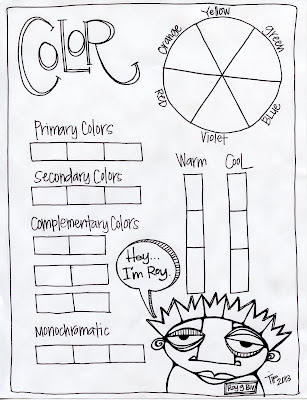 COLOR
Yellow
Orange
green
Red
BLUE
Violet
Primary Colors
Warm
Cool
Secondary Colors
Complementary Colors
Hey...
I'm Roy.
Monochromatic
Roy G Biv
2013